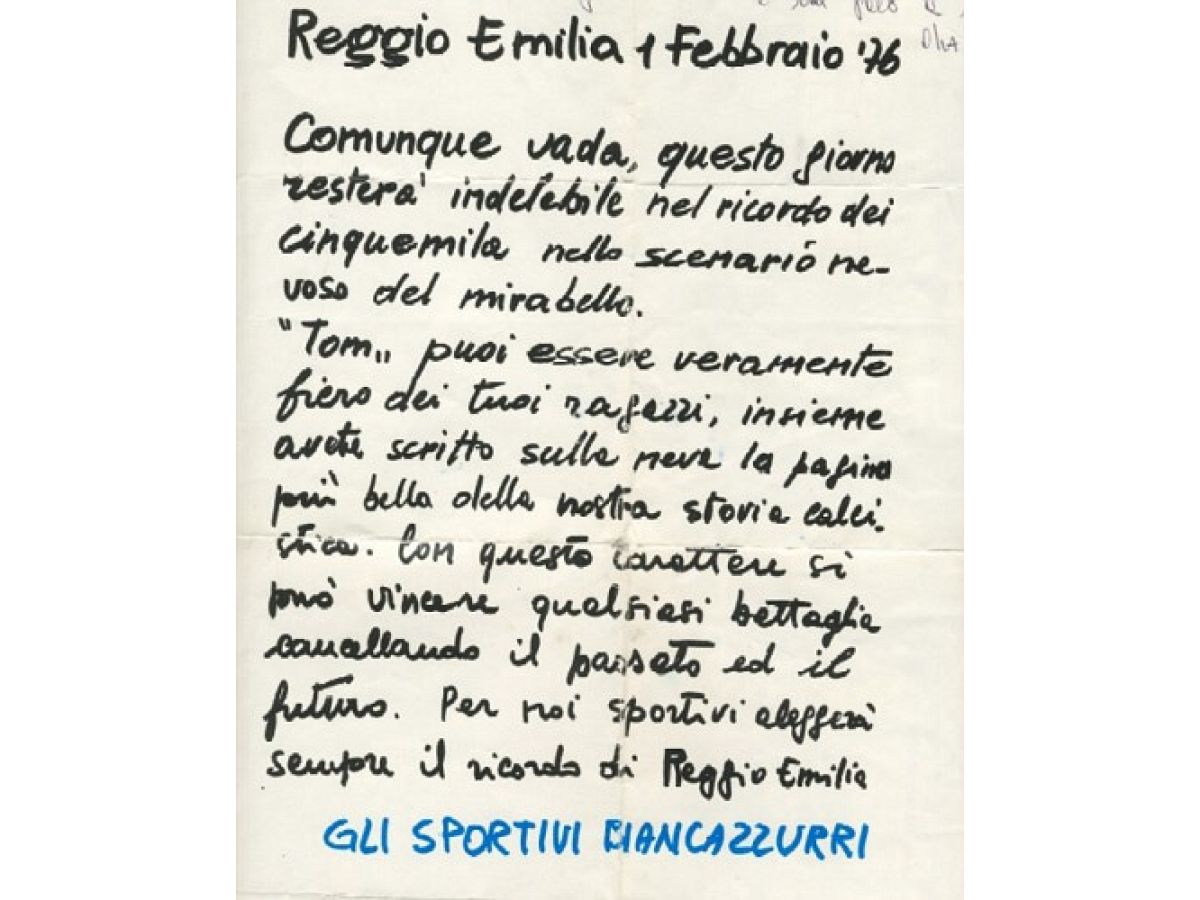 Reggio Emilia 1 Febbraio '76
Comunque vada, questo giorno
resterà indelebile nel ricordo dei
cinquemila nello scenario ne-
voso del mirabello.
"Tom„ puoi essere veramente
fiero dei tuoi ragazzi, insieme
avete scritto sulla neve la pagina
più bella della nostra storia calci-
stica. Con questo carattere si
può vincere qualsiasi battaglia
cancellando il passato ed il
futuro. Per noi sportivi aleggerà
sempre il ricordo di Reggio Emilia
GLI SPORTIVI BIANCAZZURRI